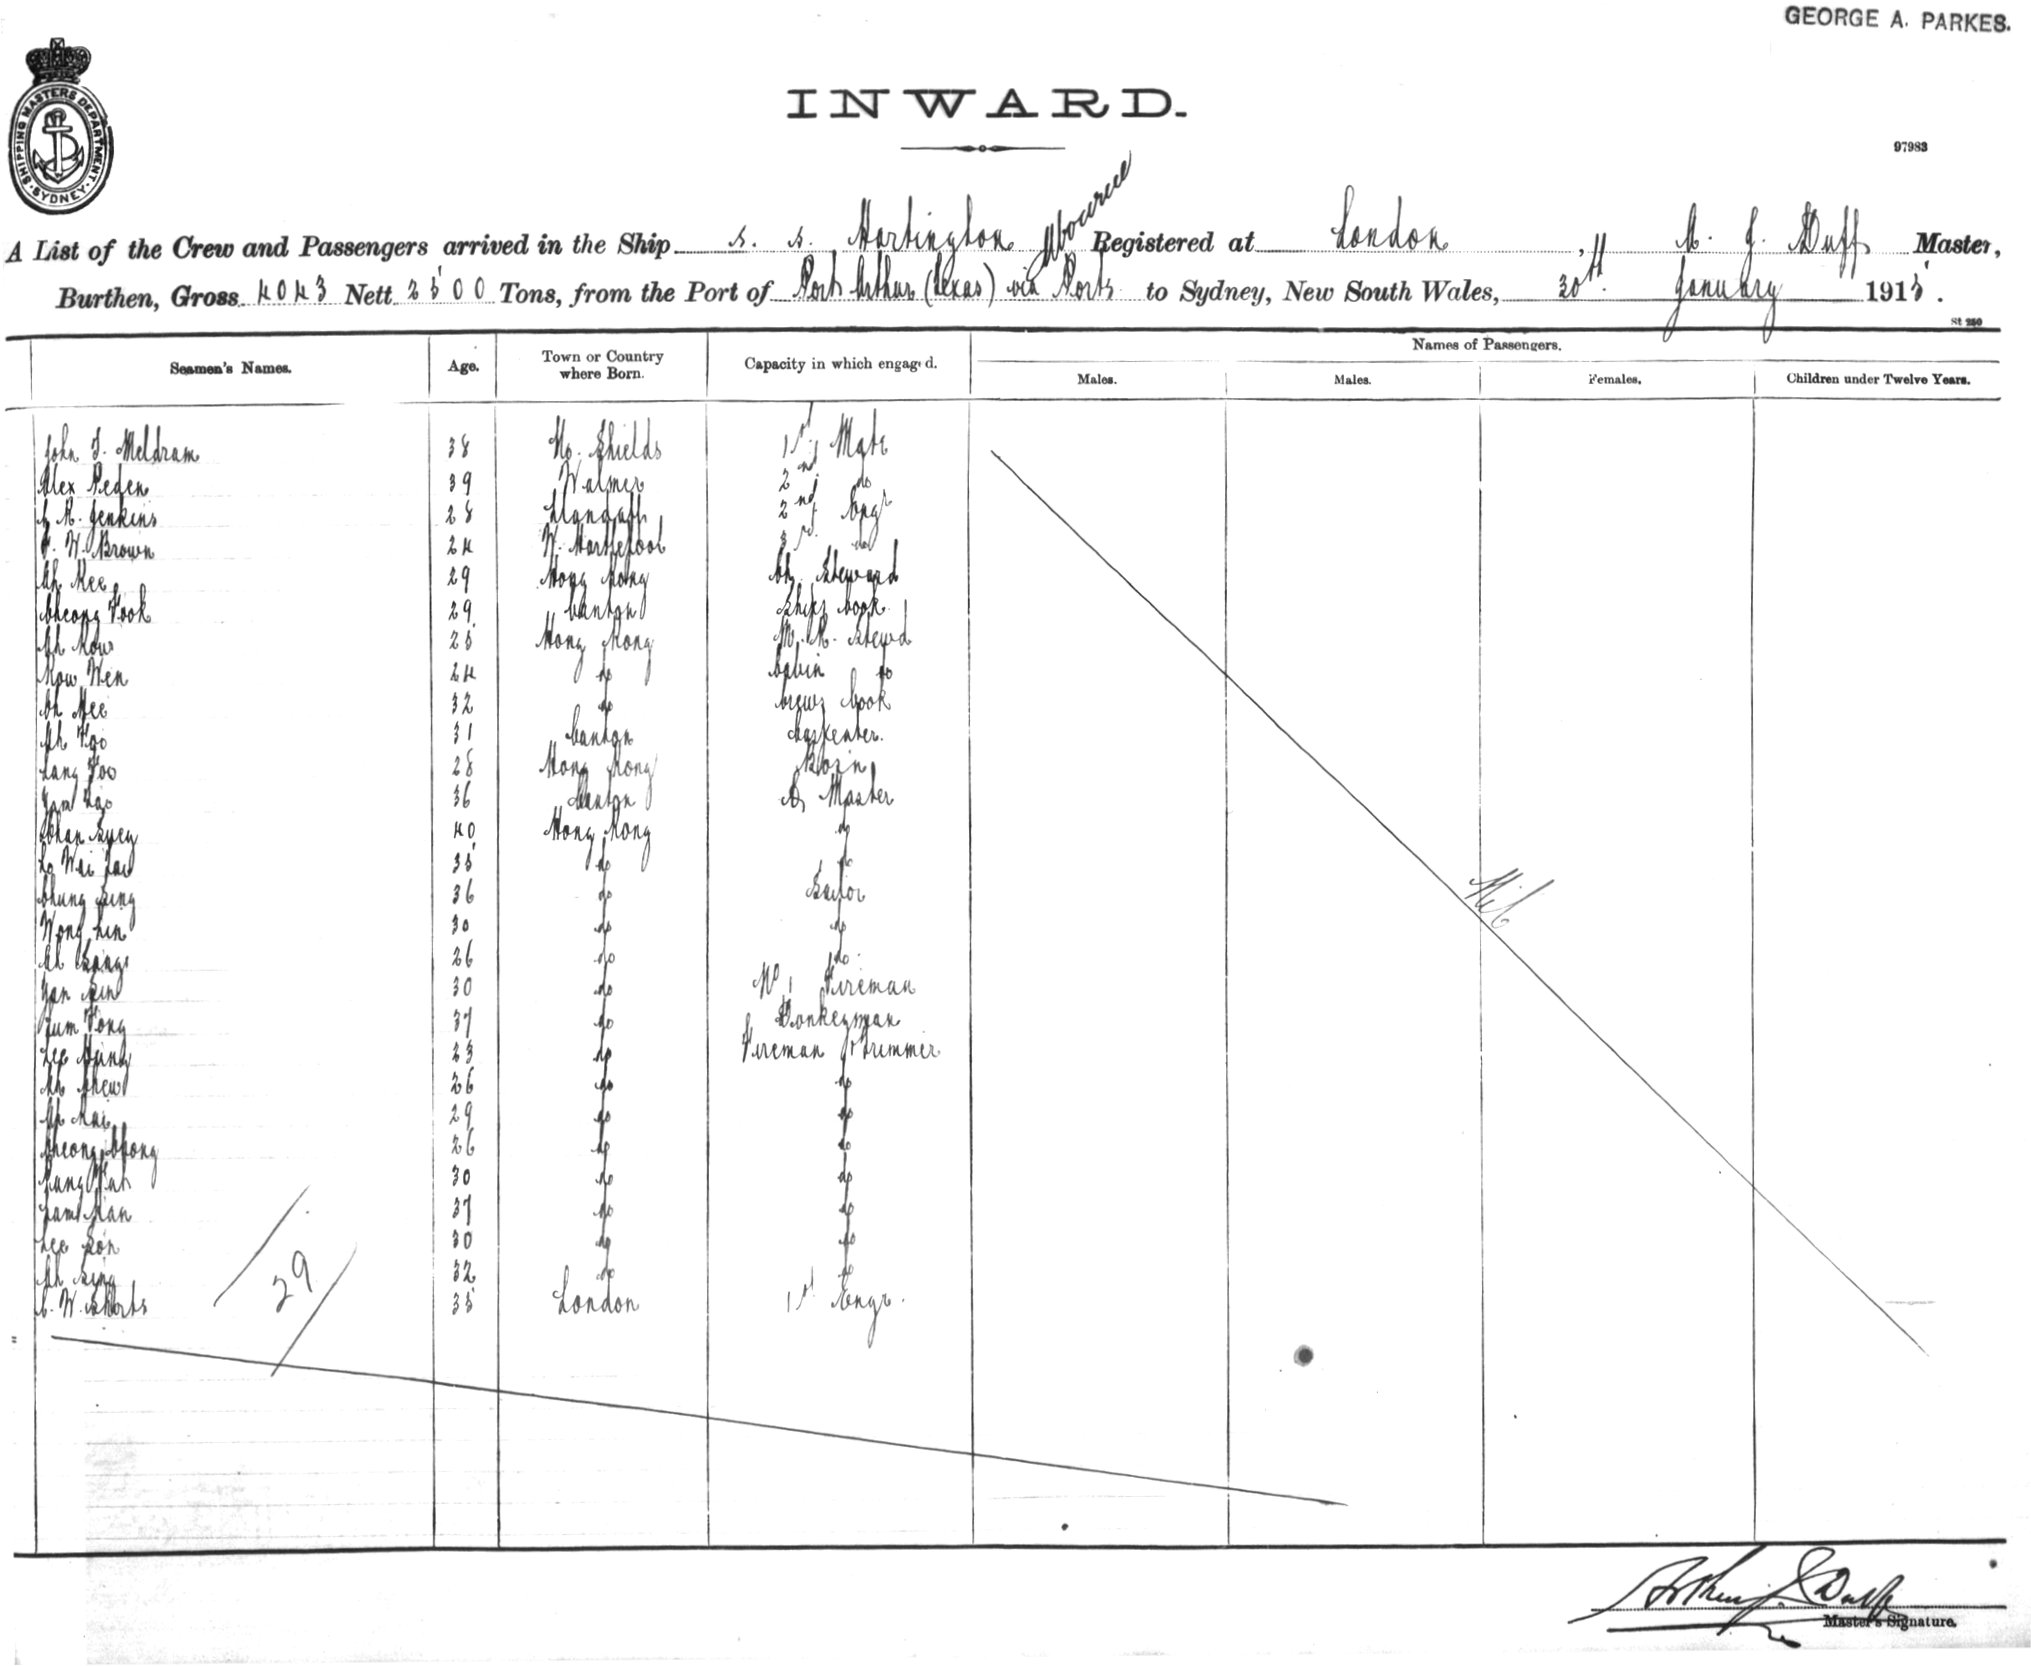 GEORGE A. PARKES.
SHIPPING MASTERS DEPARTMENT. SYDNEY
INWARD.
97983
A List of the Crew and Passengers arrived in the Ship s. s. Hartington Registered at London, A. J. Duff Master,
Burthen, Gross 4043 Nett 2500 Tons, from the Port of Port Arthur (Texas) via Ports to Sydney, New South Wales, 30th January 1915.
St 250
Seamen's Names. Age. Town or Country where Born. Capacity in which engaged. Names of Passengers.
Males. Males. Females. Children under Twelve Years.
John T. Meldram 38 No. Shields 1st Mate
Alex Peden 39 Walmer 2nd do
R. Jenkins 28 Llandaff 2nd Engr
W. Brown 24 W. Hartlepool 3rd do
Ah Kee 29 Hong Kong Ch. Steward
Cheong Fook 29 Canton Ships Cook
Ah Kow 25 Hong Kong M. R. Stewd
Kow Wen 24 do Cabin do
Ah Hee 32 do Crews Cook
Ah 31 Canton Carpenter.
28 Hong Kong Bosn
36 Canton Q. Master
Chan 40 Hong Kong do
Lo Wai 35 do do
Chung Sing 36 do Sailor
Wong Lin 30 do do
Ah 26 do do
30 do No 1 Fireman
Fong 37 do Donkeyman
Lee 23 do Fireman & Trimmer
Ah 26 do do
Ah 29 do do
Cheong 26 do do
30 do do
37 do do
Lee 30 do do
Ah Sing 32 do do
C. W. 35 London 1st Engr.
29
Nil
Arthur J. Duff
Master's Signature.